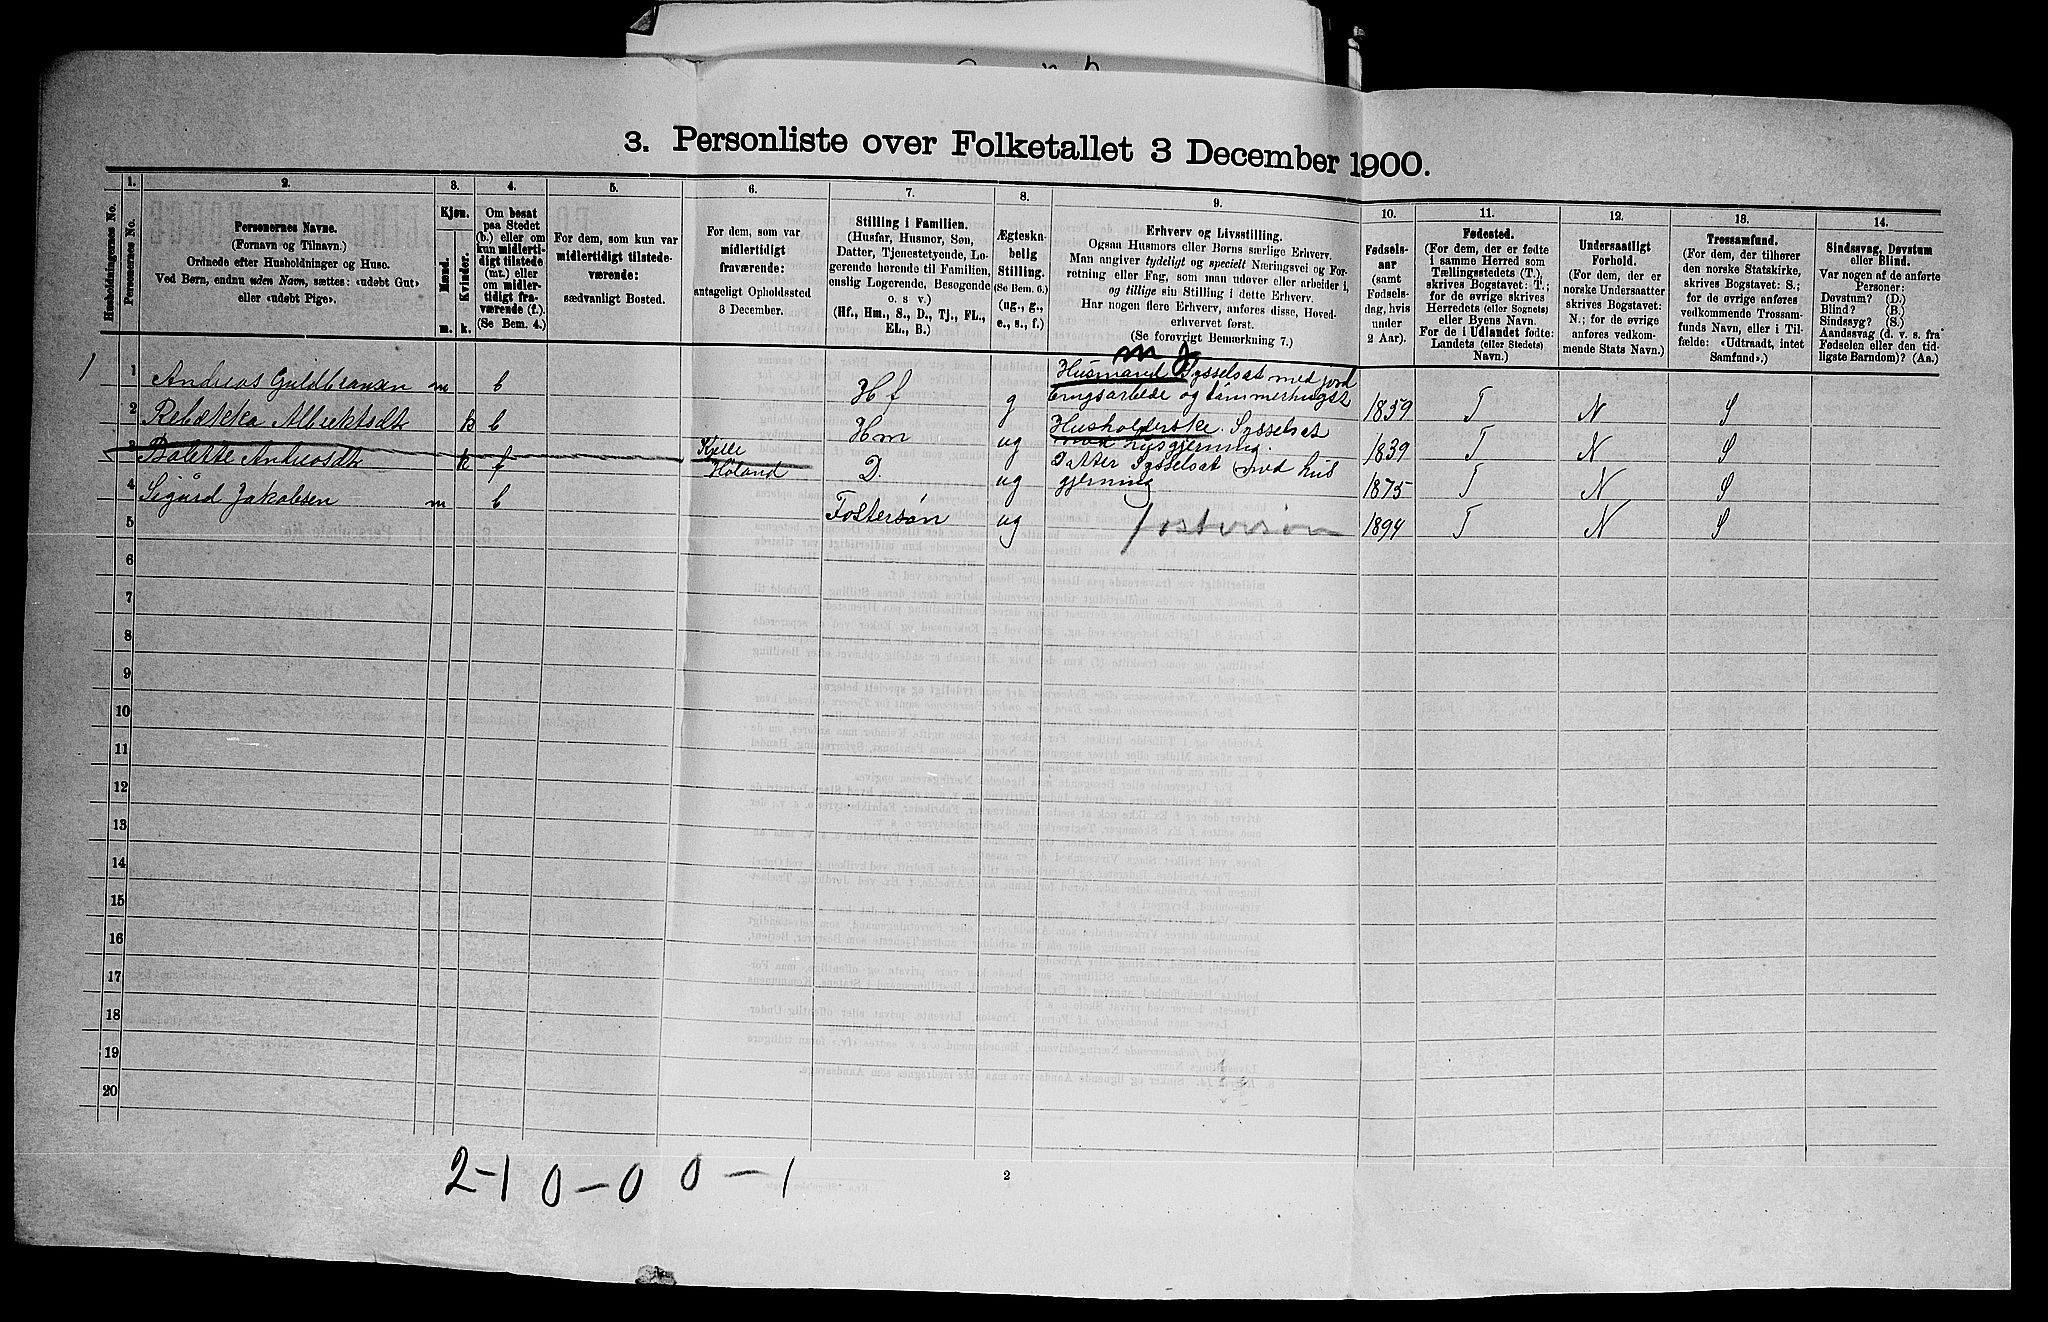 3. Personliste over Folketallet 3 December 1900.
Husholdningernes No.
1.
Personernes No.
2.
Personernes Navne.
(Fornavn og Tilnavn.)
Ordnede efter Husholdninger og Huse.
Ved Børn, endnu uden Navn, sættes: «udøbt Gut»
eller «udøbt Pige».
3.
Kjøn.
Mænd.
Kvinder.
m.
k.
4.
Om bosat
paa Stedet
(b.) eller om
kun midlerti-
digt tilstede
(mt.) eller
om midler-
tidigt fra-
værende (f.).
(Se Bem. 4.)
5.
For dem, som kun var
midlertidigt tilstede-
værende:
sædvanligt Bosted.
6.
For dem, som var
midlertidigt
fraværende:
antageligt Opholdssted
3 December.
7.
Stilling i Familien.
(Husfar, Husmor, Søn,
Datter, Tjenestetyende, Lo-
gerende hørende til Familien,
enslig Logerende, Besøgende
o. s v.)
(Hf., Hm., S., D., Tj., FL.,
EL., B.)
8.
Ægteska-
belig
Stilling.
(Se Bem. 6.)
(ug., g.,
e., s., f.)
9.
Erhverv og Livsstilling.
Ogsaa Husmors eller Børns særlige Erhverv.
Man angiver tydeligt og specielt Næringsvei og For-
retning eller Fag, som man udøver eller arbeider i,
og tillige sin Stilling i dette Erhverv.
Har nogen flere Erhverv, anføres disse, Hoved-
erhvervet først.
(Se forøvrigt Bemærkning 7.)
10.
Fødsels-
aar
(samt
Fødsels-
dag, hvis
under
2 Aar).
11.
Fødested.
(For dem, der er fødte
i samme Herred som
Tællingsstedets (T.),
skrives Bogstavet: T.;
for de øvrige skrives
Herredets (eller Sognets)
eller Byens Navn.
For de i Udlandet fødte:
Landets (eller Stedets)
Navn.)
12.
Undersaatligt
Forhold.
(For dem, der er
norske Undersaatter
skrives Bogstavet:
N.; for de øvrige
anføres vedkom-
mende Stats Navn.)
13.
Trossamfund.
(For dem, der tilhører
den norske Statskirke,
skrives Bogstavet: S.;
for de øvrige anføres
vedkommende Trossam-
funds Navn, eller i Til-
fælde: «Udtraadt, intet
Samfund».)
14.
Sindssvag, Døvstum
eller Blind.
Var nogen af de anførte
Personer:
Døvstum? (D.)
Blind? (B.)
Sindssyg? (S.)
Aandssvag (d. v. s. fra
Fødselen eller den tid-
ligste Barndom)? (Aa.)
m J
1 1 Andreas Guldbransen m b Hf g Husmand Sysselsat med jord
brugsarbede og tømmerhugst 1859 T N S
2 Rebækka Albrektsdt k b Hm ug Husholderske. Sysselsat
med husgjerning 1839 T N S
3 Bolette Andreasdt k f Kjelle
Høland D ug Datter Sysselsat med hus
gjerning 1875 T N S
4 Sigurd Jakobsen m b Fostersøn ug Fostersøn 1894 T N S
5
6
7
8
9
10
11
12
13
14
15
16
17
18
19
20
2-1 0-0 0-1
2